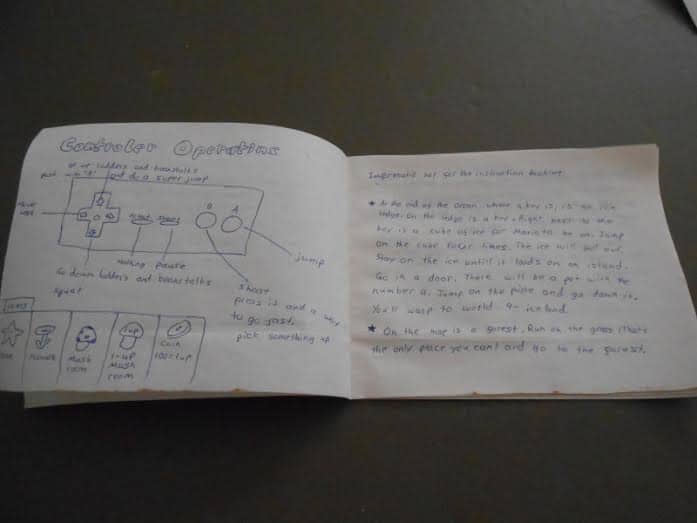 Controler Operatins
up ladders and beanstalks
push with "A" and do a super jump
move
B
A
select
start
nothing
pause
jump
Go down ladders and beanstalks
squat
shoot
press B and a way
to go fast.
pick something up
items
Star
Flower
Mush
room
1-up
Mush
room
1up
Coin
100=1up
for the instruction booklet
★ At the end of the ocean, where a key is, is an ice
ridge. On the ridge is a key. Right next to the
key is a cube of ice for Mario to be on. Jump
on the cube four times. The ice will fall out.
Stay on the ice untill it lands on an island.
Go in a door. There will be a pot with the
number 9. Jump on the pipe and go down it.
You'll warp to world 9- ice land.
★ On the map is a forest. Run on the grass (that's
the only place you can) and go to the forest.